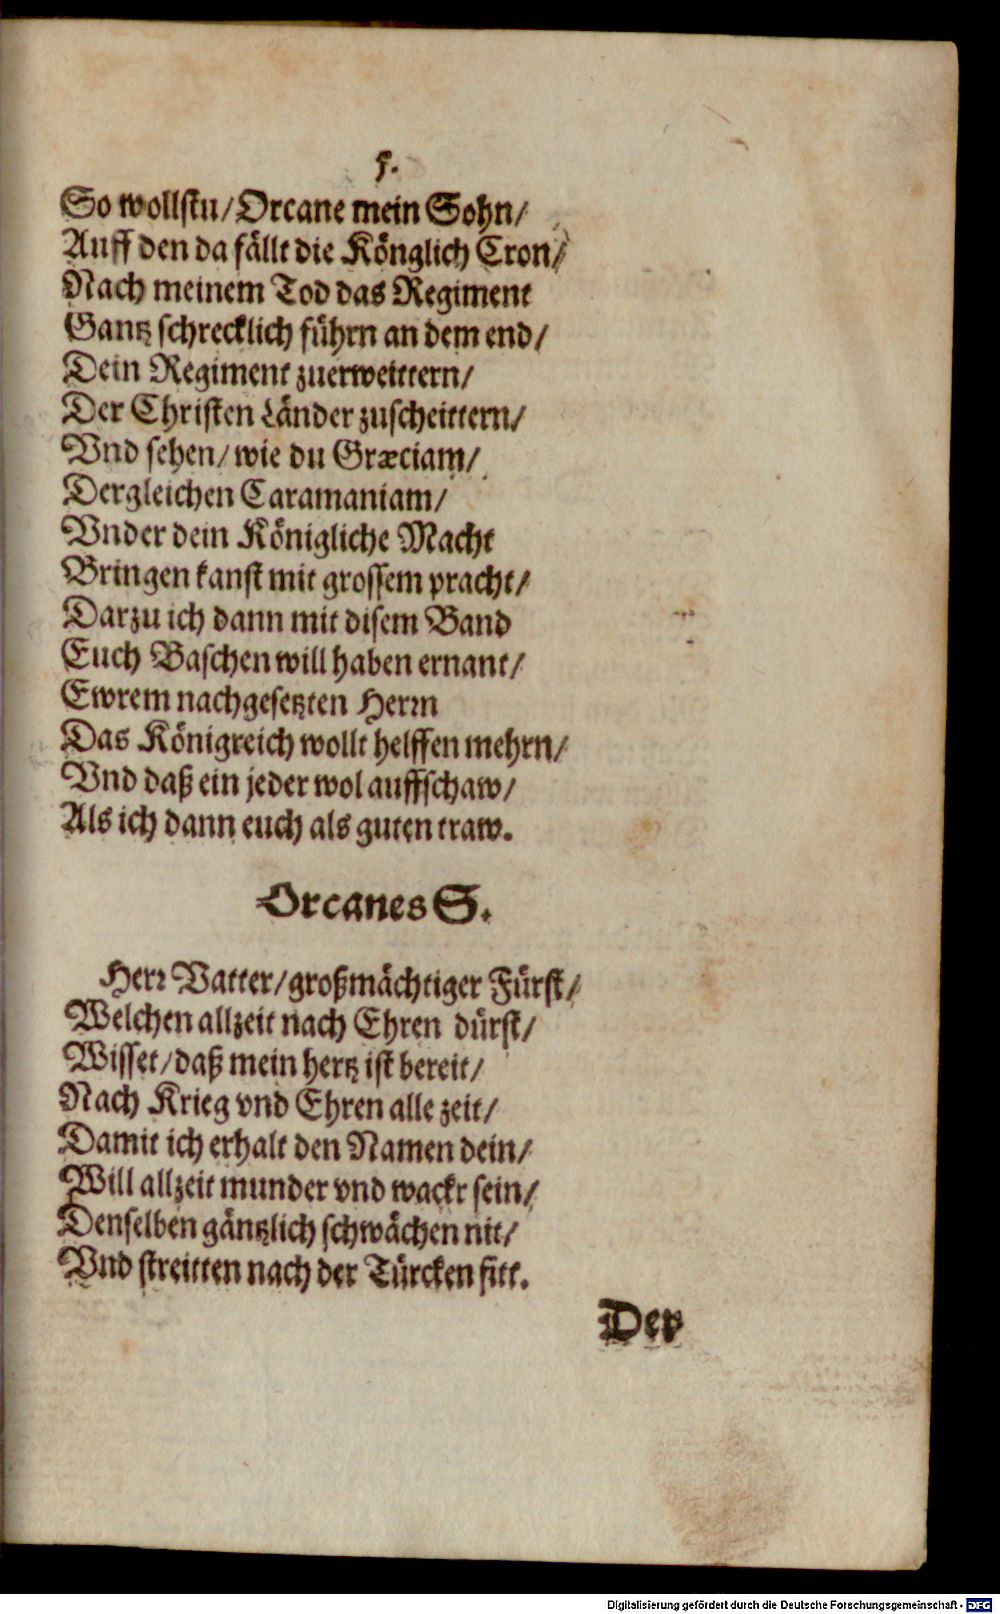 5.
So wollstu/ Orcane mein Sohn/
Auff den da fällt die Könglich Cron/
Nach meinem Tod das Regiment
Gantz schrecklich führn an dem end/
Dein Regiment zuerweittern/
Der Christen Länder zuscheittern/
Vnd sehen/ wie du Græciam/
Dergleichen Caramaniam/
Vnder dein Königliche Macht
Bringen kanst mit grossem pracht/
Darzu ich dann mit disem Band
Euch Baschen will haben ernant/
Ewrem nachgesetzten Herrn
Das Königreich wollt helffen mehrn/
Vnd daß ein jeder wol auffschaw/
Als ich dann euch als guten traw.
Orcanes S.
Herr Vatter/ großmächtiger Fürst/
Welchen allzeit nach Ehren dürst/
Wisset/ daß mein hertz ist bereit/
Nach Krieg vnd Ehren alle zeit/
Damit ich erhalt den Namen dein/
Will allzeit munder vnd wackr sein/
Denselben gäntzlich schwächen nit/
Vnd streitten nach der Türcken sitt.
Der
Digitalisierung gefördert durch die Deutsche Forschungsgemeinschaft - DFG